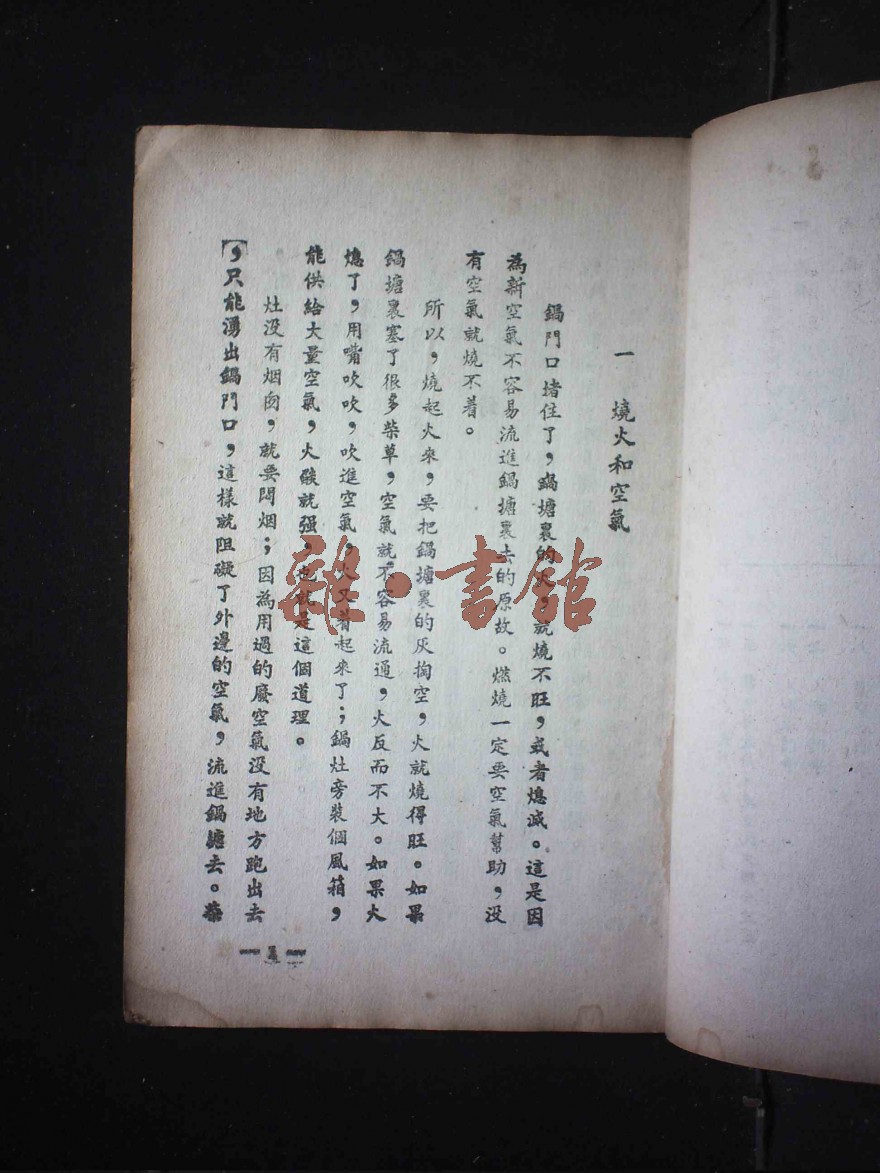 一 燒火和空氣
鍋門口堵住了，鍋塘裏的火，就燒不旺，或者熄滅。這是因
為新空氣不容易流進鍋塘裏去的原故。燃燒一定要空氣幫助，没
有空氣就燒不着。
所以，燒起火來，要把鍋塘裏的灰掏空，火就燒得旺。如果
鍋塘裏塞了很多柴草，空氣就不容易流通，火反而不大。如果火
熄了，用嘴吹吹，吹進空氣，火又着起來了；鍋灶旁裝個風箱，
能供給大量空氣，火燄就强，也就是這個道理。
灶没有烟囱，就要悶烟；因為用過的廢空氣没有地方跑出去
，只能湧出鍋門口，這樣就阻礙了外邊的空氣，流進鍋塘去。裝
— 1 —
雜·書館